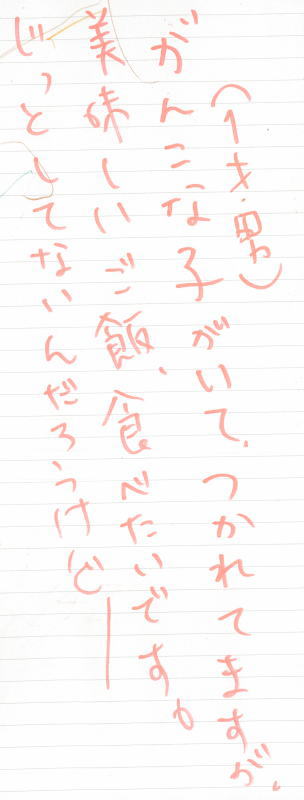 （1才男）
がんこな子がいて、つかれてますが、
美味しいご飯、食べたいです。
じっとしてないんだろうけどー